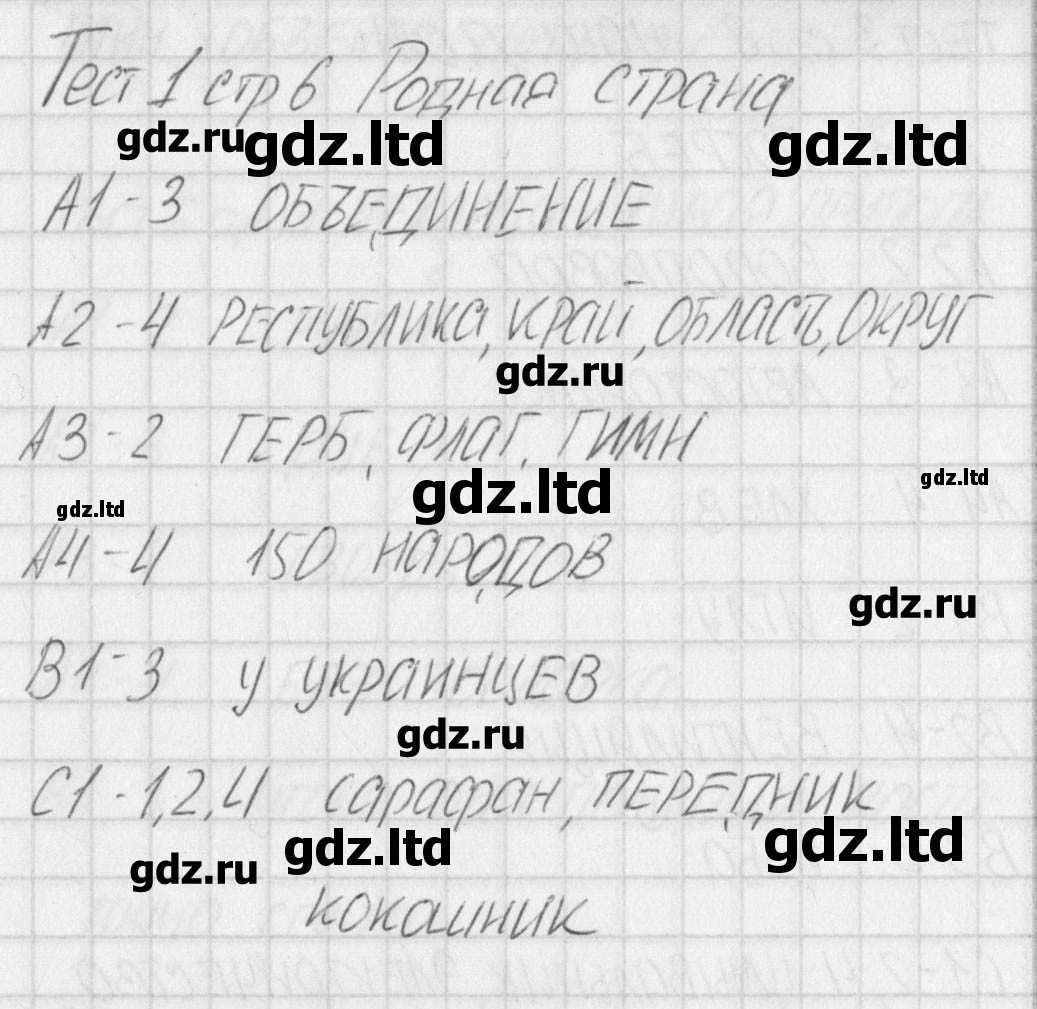 Тест 1 стр 6 Родная страна
gdz.ru gdz.ltd gdz.ltd
А1 - 3 ОБЪЕДИНЕНИЕ
А2 - 4 РЕСПУБЛИКА, КРАЙ, ОБЛАСТЬ, ОКРУГ
gdz.ru
А3 - 2 ГЕРБ, ФЛАГ, ГИМН
gdz.ltd gdz.ltd gdz.ltd
А4 - 4 150 НАРОДОВ
gdz.ru
В1 - 3 У УКРАИНЦЕВ
gdz.ru
С1 - 1,2,4 сарафан, ПЕРЕДНИК
gdz.ru gdz.ltd gdz.ltd
кокошник